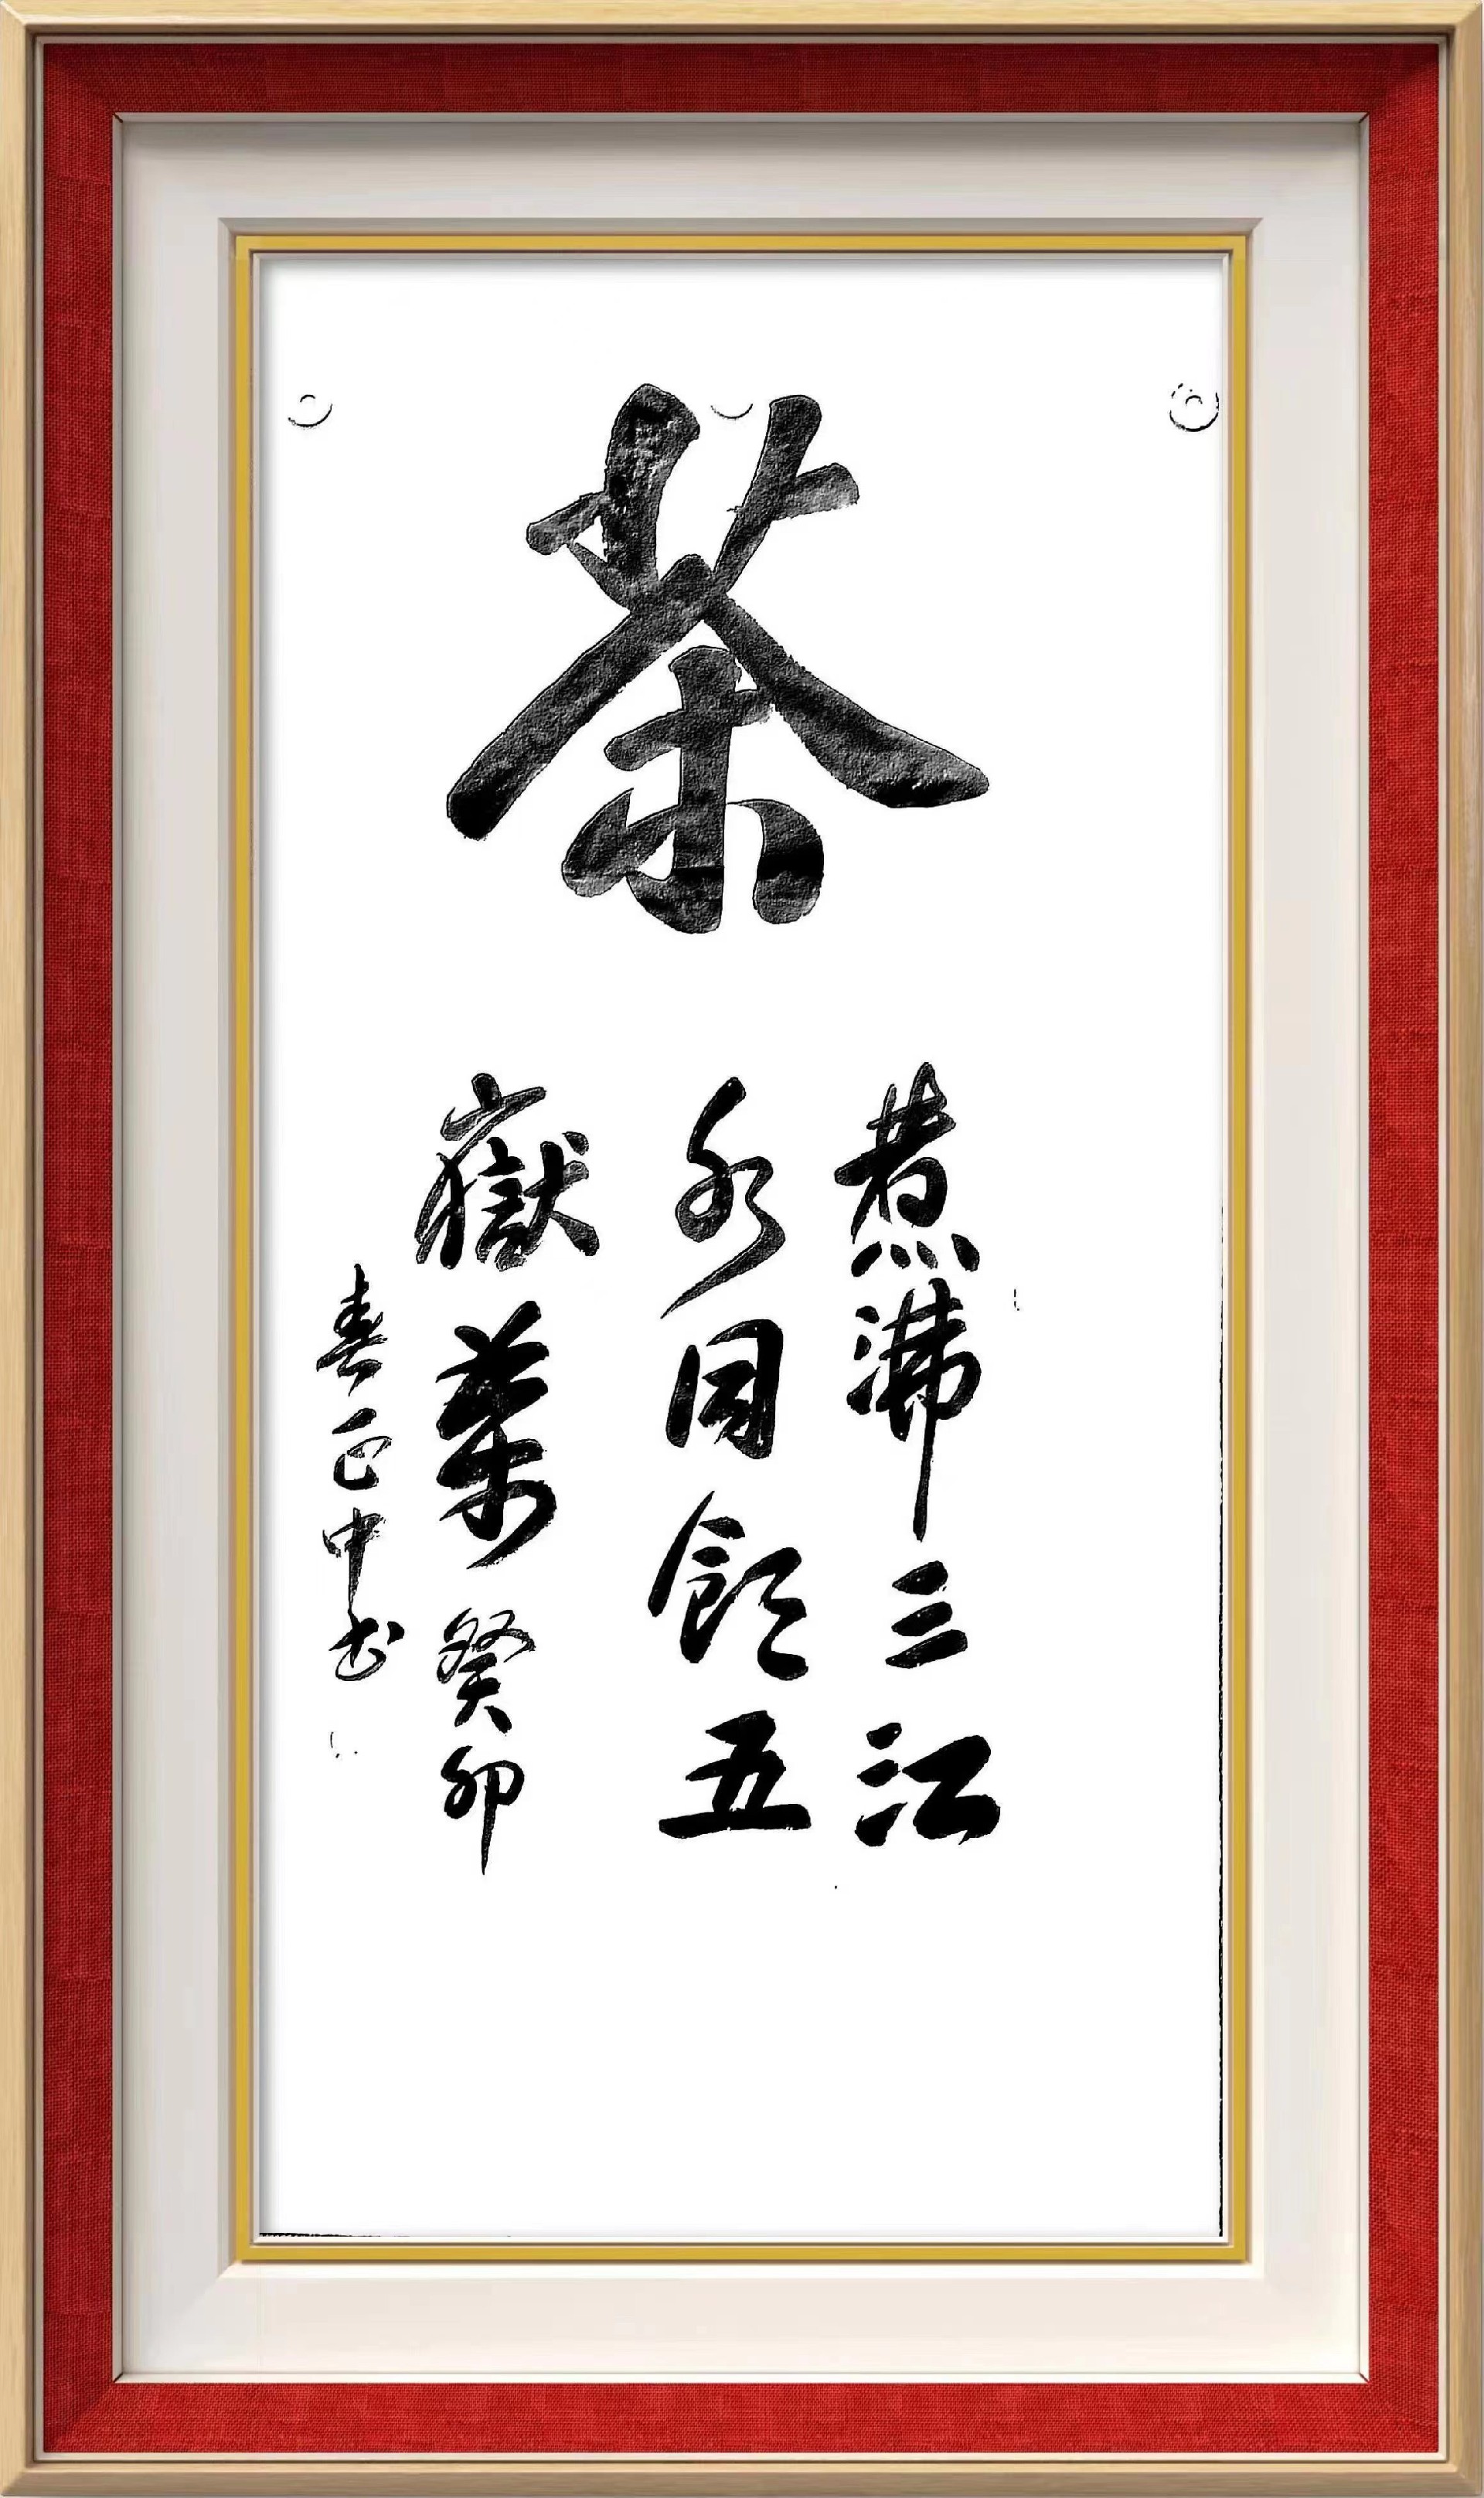 茶
煮沸三江
水同飲五
嶽葉癸卯
春正中书